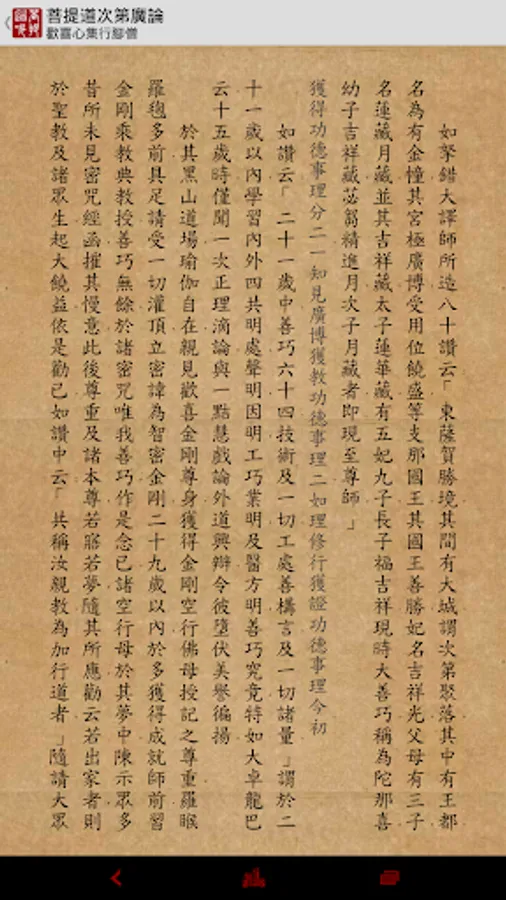 菩提道次第廣論
歡喜心集行腳僧
如拏錯大譯師所造八十讚云「東薩賀勝境其間有大城謂次第聚落其中有王都
名為有金幢其宮極廣博受用位饒盛等支那國王其國王善勝妃名吉祥光父母有三子
名蓮藏月藏並其吉祥藏太子蓮華藏有五妃九子長子福吉祥現時大善巧稱為陀那喜
幼子吉祥藏苾芻精進月次子月藏者即現至尊師」
獲得功德事理分二一知見廣博獲教功德事理二如理修行獲證功德事理今初
如讚云「二十一歲中善巧六十四技術及一切工處善構言及一切諸量」謂於二
十一歲以內學習內外四共明處聲明因明工巧業明及醫方明善巧究竟特如大卓龍巴
云十五歲時僅聞一次正理滴論與一點慧戲論外道興辯令彼墮伏美譽徧揚
於其黑山道場瑜伽自在親見歡喜金剛尊身獲得金剛空行佛母授記之尊重羅睺
羅毱多前具足請受一切灌頂立密諱為智密金剛二十九歲以內於多獲得成就師前習
金剛乘教典教授善巧無餘於諸密咒唯我善巧作是念已諸空行母於其夢中陳示眾多
昔所未見密咒經函摧其慢意此後尊重及諸本尊若寤若夢隨其所應勸云若出家者則
於聖教及諸眾生起大饒益依是勸已如讚中云「共稱汝親教為加行道者」隨請大眾